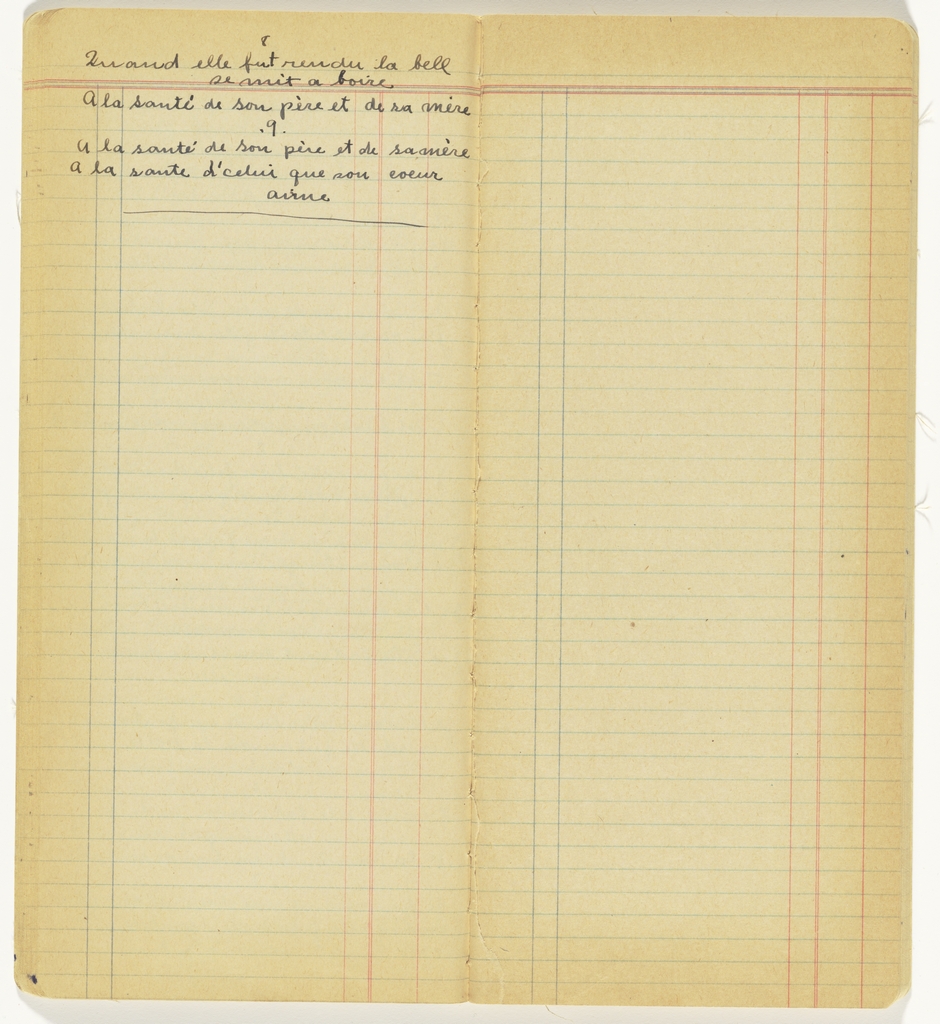 8
Quand elle fut rendu la bell
se mit a boire
A la santé de son père et de sa mère
.9.
A la santé de son père et de sa mère
A la sante d'celui que son coeur
aime